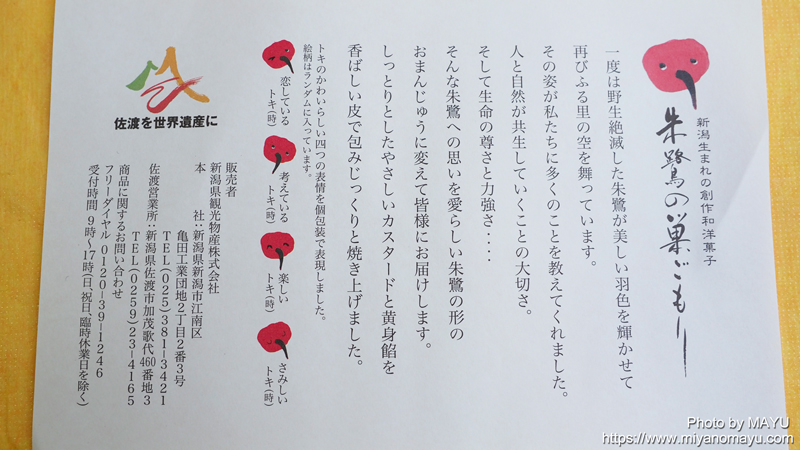 新潟生まれの創作和洋菓子
朱鷺の巣ごもり
一度は野生絶滅した朱鷺が美しい羽色を輝かせて
再びふる里の空を舞っています。
その姿が私たちに多くのことを教えてくれました。
人と自然が共生していくことの大切さ。
そして生命の尊さと力強さ‥‥
そんな朱鷺への思いを愛らしい朱鷺の形の
おまんじゅうに変えて皆様にお届けします。
しっとりとしたやさしいカスタードと黄身餡を
香ばしい皮で包みじっくりと焼き上げました。
トキのかわいらしい四つの表情を個包装で表現しました。
絵柄はランダムに入っています。
恋している
トキ(時)
考えている
トキ(時)
楽しい
トキ(時)
さみしい
トキ(時)
佐渡を世界遺産に
販売者
新潟県観光物産株式会社
本　　社：新潟県新潟市江南区
亀田工業団地2丁目2番3号
TEL(025)381-3421
佐渡営業所：新潟県佐渡市加茂歌代460番地3
TEL(0259)23-4165
商品に関するお問い合わせ
フリーダイヤル 0120-39-1246
受付時間 9時〜17時(日、祝日、臨時休業日を除く)
Photo by MAYU
https://www.miyanomayu.com/